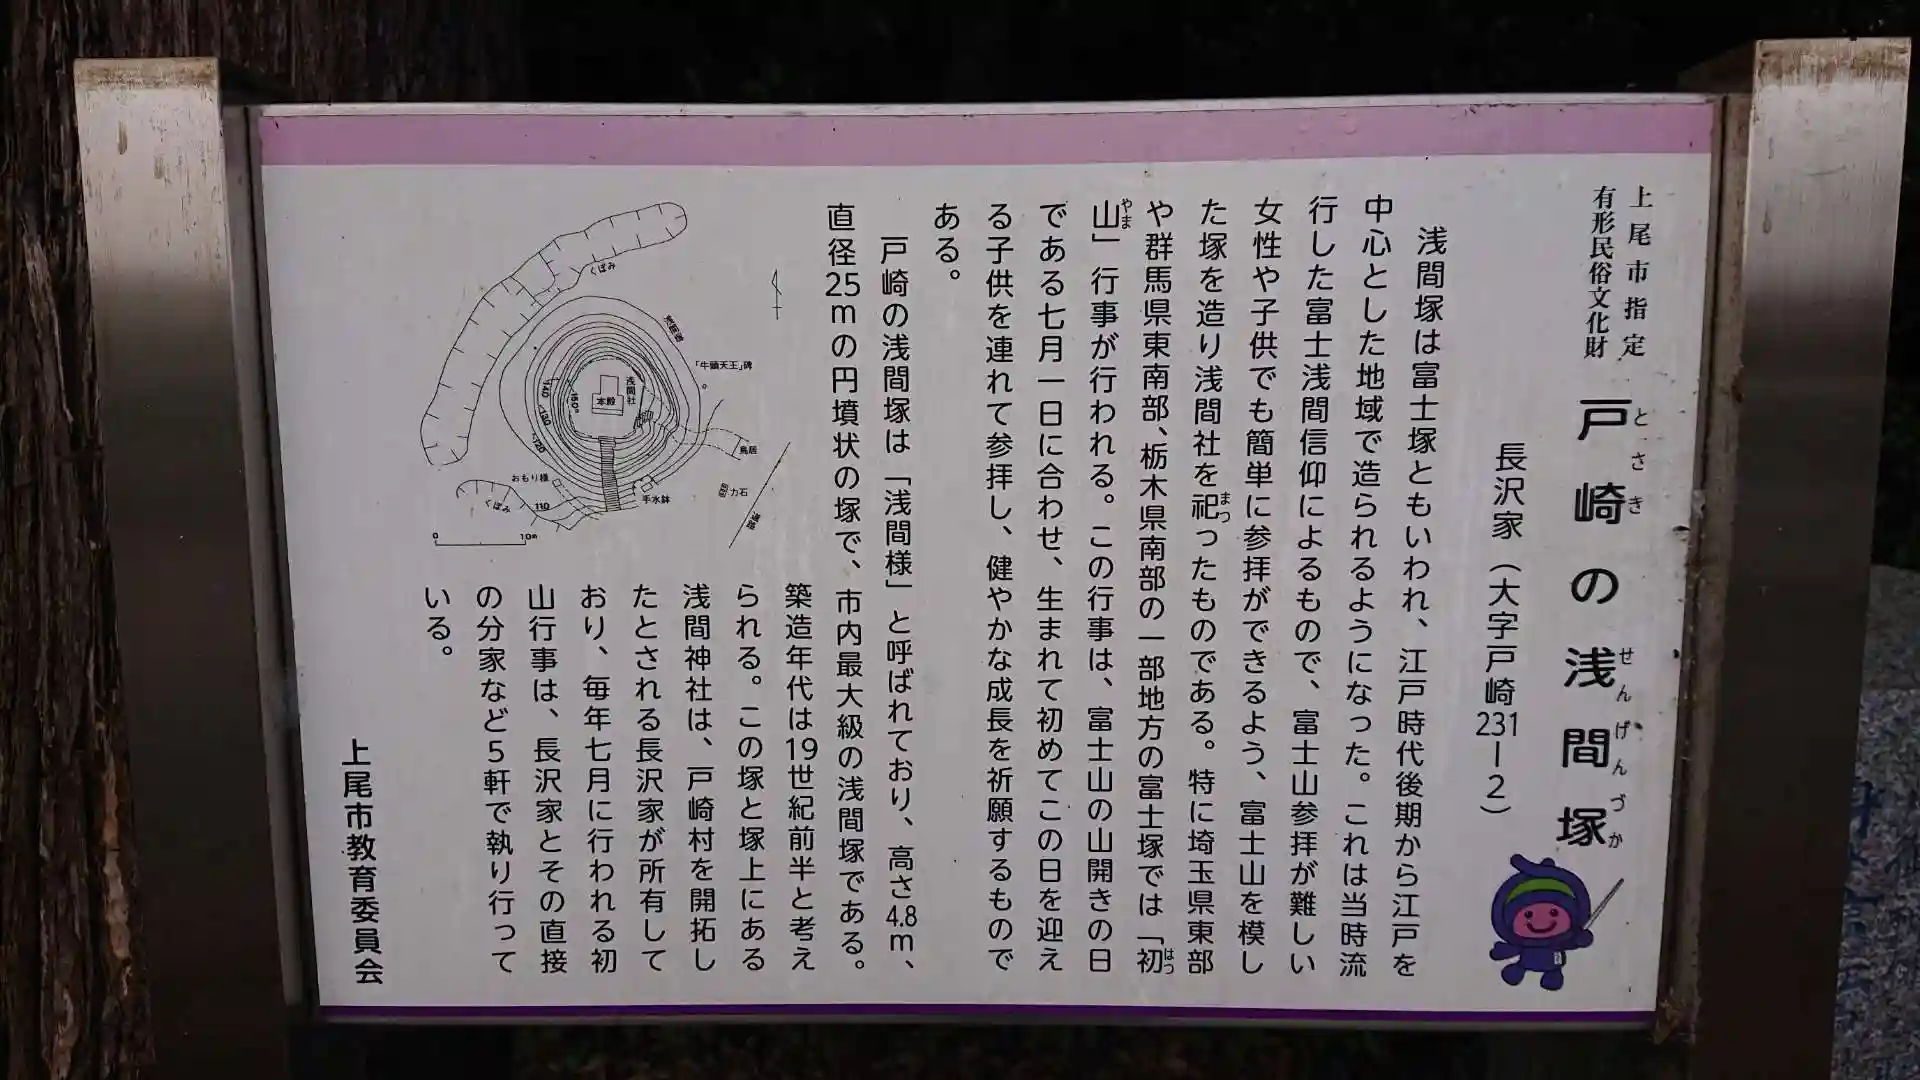 上尾市指定
有形民俗文化財
戸崎の浅間塚
とさき
せんげんづか
長沢家（大字戸崎231－2）
浅間塚は富士塚ともいわれ、江戸時代後期から江戸を
中心とした地域で造られるようになった。これは当時流
行した富士浅間信仰によるもので、富士山参拝が難しい
女性や子供でも簡単に参拝ができるよう、富士山を模し
た塚を造り浅間社を祀ったものである。特に埼玉県東部
まつ
や群馬県東南部、栃木県南部の一部地方の富士塚では「初
はつ
山」行事が行われる。この行事は、富士山の山開きの日
やま
である七月一日に合わせ、生まれて初めてこの日を迎え
る子供を連れて参拝し、健やかな成長を祈願するもので
ある。
戸崎の浅間塚は「浅間様」と呼ばれており、高さ4.8ｍ、
直径25ｍの円墳状の塚で、市内最大級の浅間塚である。
築造年代は19世紀前半と考え
られる。この塚と塚上にある
浅間神社は、戸崎村を開拓し
たとされる長沢家が所有して
おり、毎年七月に行われる初
山行事は、長沢家とその直接
の分家など５軒で執り行って
いる。
上尾市教育委員会
くぼみ
「牛頭天王」碑
浅間社
本殿
鳥居
力石
道路
手水鉢
おもり様
くぼみ
110
120
130
140
150
0
10m